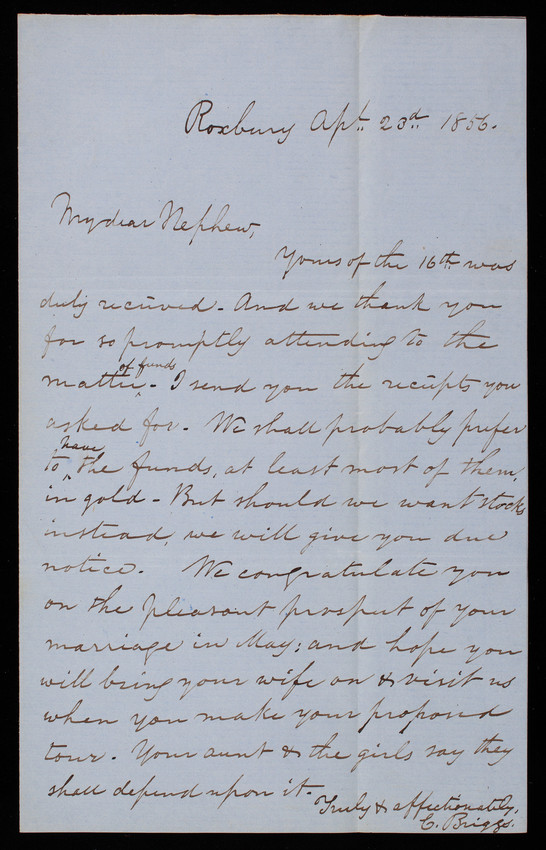 Roxbury Apl. 23d. 1856.
My dear Nephew,
Yours of the 16th was
duly received - And we thank you
for so promptly attending to the
of funds
matter - I send you the receipts you
asked for - We shall probably prefer
have
to the funds, at least most of them,
in gold - But should we want stocks
instead, we will give you due
notice. We congratulate you
on the pleasant prospect of your
marriage in May; and hope you
will bring your wife on & visit us
when you make your proposed
tour. Your aunt & the girls say they
shall depend upon it.
Truly & affectionately,
C. Briggs.